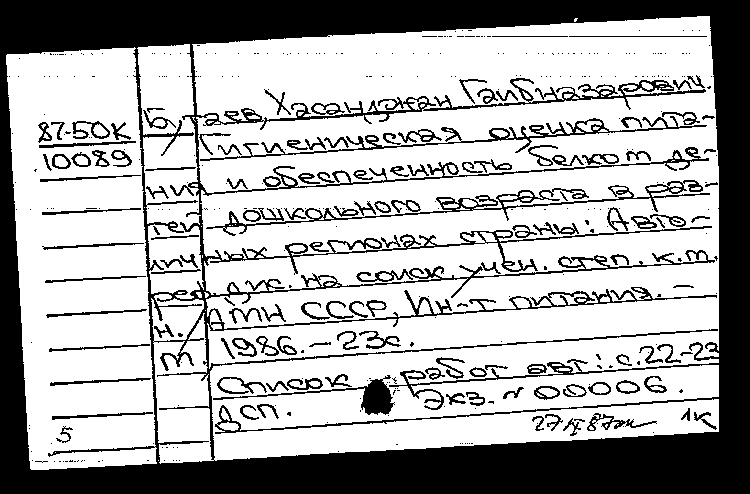 Бутаев, Хасанджан Гаибназарович.
87-50К
10089
Гигиеническая оценка пита-
ния и обеспеченность белком де-
тей дошкольного возраста в раз-
личных регионах страны: Авто-
реф. дис. на соиск. учен. степ. к.м.
н. / АМН СССР, Ин-т питания. -
М. 1986. - 23с.
Список работ авт.: с.22-23
Дсп. Экз. № 00006.
5
1к